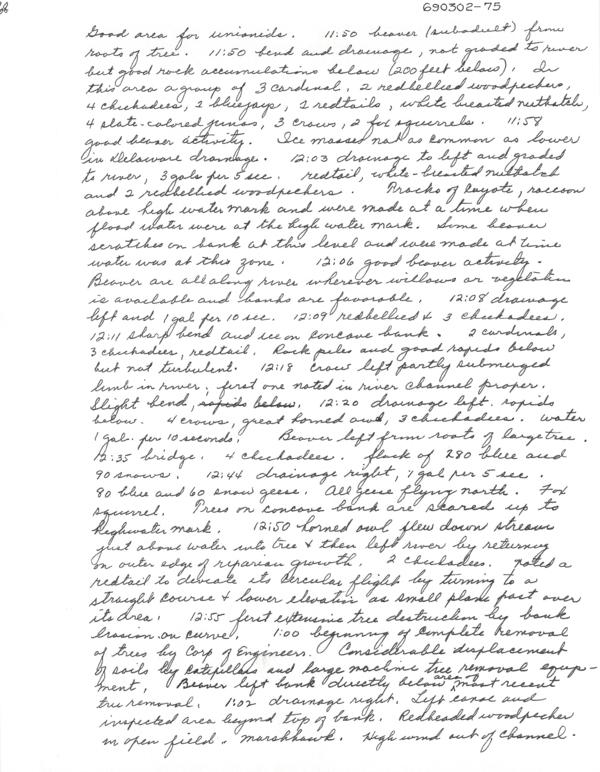 690302-75
Good area for unionids. 11:50 beaver (subadult) from
roots of tree. 11:50 bend and drainage, not graded to river
but good rock accumulations below (200 feet below). In
this area a group of 3 cardinal, 2 redbellied woodpeckers,
4 chickadees, 2 bluejays, 2 redtails, white breasted nuthatch,
4 slate-colored juncos, 3 crows, 2 fox squirrels. 11:58
good beaver activity. Ice masses not as common as lower
in Delaware drainage. 12:03 drainage to left and graded
to river, 3 gals per 5 sec. redtail, white-breasted nuthatch
and 2 redbellied woodpeckers. Tracks of coyote, raccoon
above high water mark and were made at a time when
flood water were at the high water mark. Some beaver
scratches on bank at this level and were made at time
water was at this zone. 12:06 good beaver activity.
Beaver are all along river wherever willows or vegetation
is available and banks are favorable. 12:08 drainage
left and 1 gal per 10 sec. 12:09 redbellied & 3 chickadees.
12:11 sharp bend and ice on concave bank. 2 cardinals,
3 chickadees, redtail. Rock piles and good rapids below
but not turbulent. 12:18 crow left partly submerged
limb in river, first one noted in river channel proper.
Slight bend, rapids below. 12:20 drainage left. rapids
below. 4 crows, great horned owl, 3 chickadees. Water
1 gal. per 10 seconds. Beaver left from roots of large tree.
12:35 bridge. 4 chickadees. flock of 280 blue and
90 snows. 12:44 drainage right, 1 gal per 5 sec.
80 blue and 60 snow geese. All geese flying north. Fox
squirrel. Trees on concave bank are scared up to
highwater mark. 12:50 horned owl flew down stream
just above water into tree & then left river by returning
on outer edge of riparian growth. 2 chickadees. noted a
redtail to deviate its circular flight by turning to a
straight course & lower elevation as small plane past over
its area. 12:55 first extensive tree destruction by bank
erosion on curve. 1:00 beginning of complete removal
of trees by Corp of Engineers. Considerable displacement
of soils by catepillars and large machine tree removal equip-
ment. Beaver left bank directly below area of most recent
tree removal. 1:02 drainage right. Left canoe and
inspected area beyond top of bank. Redheaded woodpecker
in open field. Marshhawk. High wind out of channel.